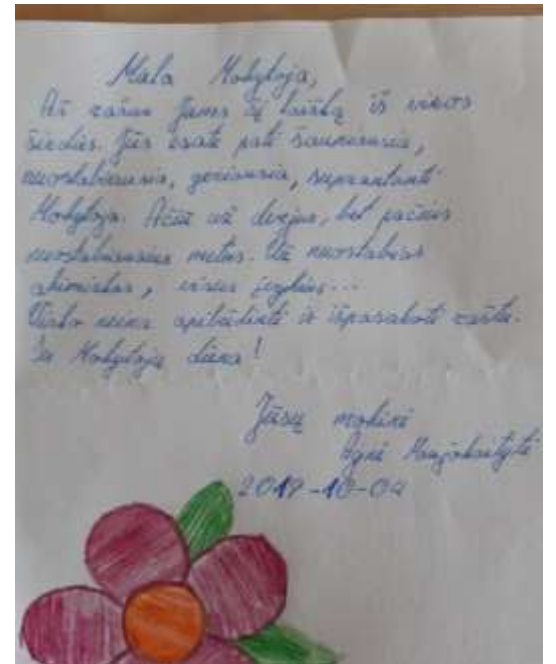 Miela Mokytoja,
Aš rašau Jums šį laišką iš visos
širdies. Jūs esate pati šauniausia,
nuostabiausia, geriausia, suprantanti
Mokytoja. Ačiū už dvejus, bet pačius
nuostabiausius metus. Už nuostabias
akimirkas, visus
Visko neina apibūdinti ir išpasakoti raštu.
Su Mokytojų diena!
Jūsų mokinė
Agnė
2019-10-04